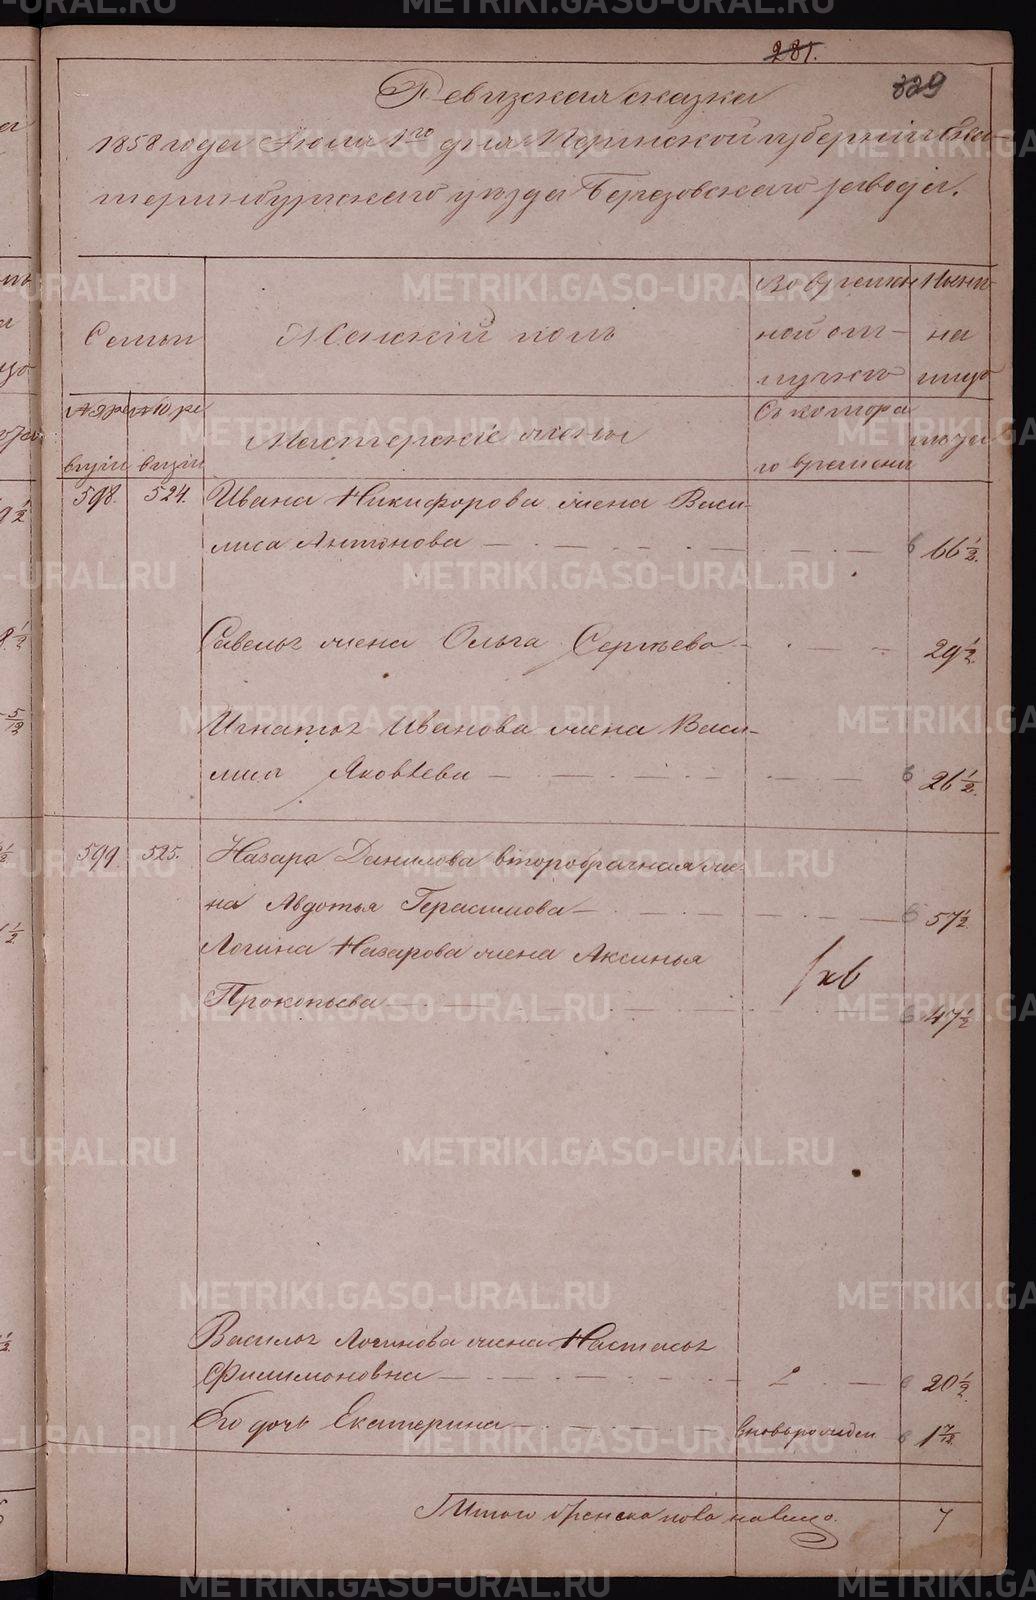 281.
329
Ревизская сказка
1858 года Июля 1го дня Пермской губернии Ека-
теринбургского уезда Березовского завода.
Семьи
Женский полъ
Во времен-
ной от-
лучке
Ныне
на
лицо
По 9 ре
визiи
по 10 ре
визiи
Мастерские жены
Съ котора
го времени
лета
598.
524.
Ивана Никифорова жена Васи-
лиса Антонова
66 1/2.
Савелья жена Ольга Сергеева
29 1/2.
Игнатья Иванова жена Васи-
лиса Яковлева
26 1/2.
599
525.
Назара Данилова второбрачная же-
на Авдотья Герасимова
57 1/2.
Логина Назарова жена Аксинья
Прокопьева
47 1/2
Василья Логинова жена Настасья
Филимоновна
2
20 1/2.
Его дочь Екатерина
вновьрожден
1 7/12.
Итого женска пола на лицо.
7
METRIKI.GASO-URAL.RU